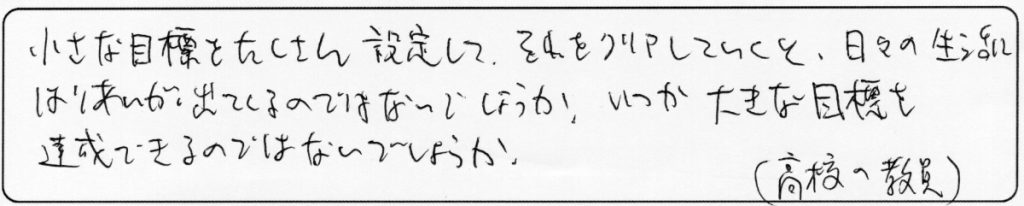 小さな目標をたくさん設定して、それをクリアしていくと、日々の生活に
はりあいが出てくるのではないでしょうか、いつか大きな目標を
達成できるのではないでしょうか。
(高校の教員)